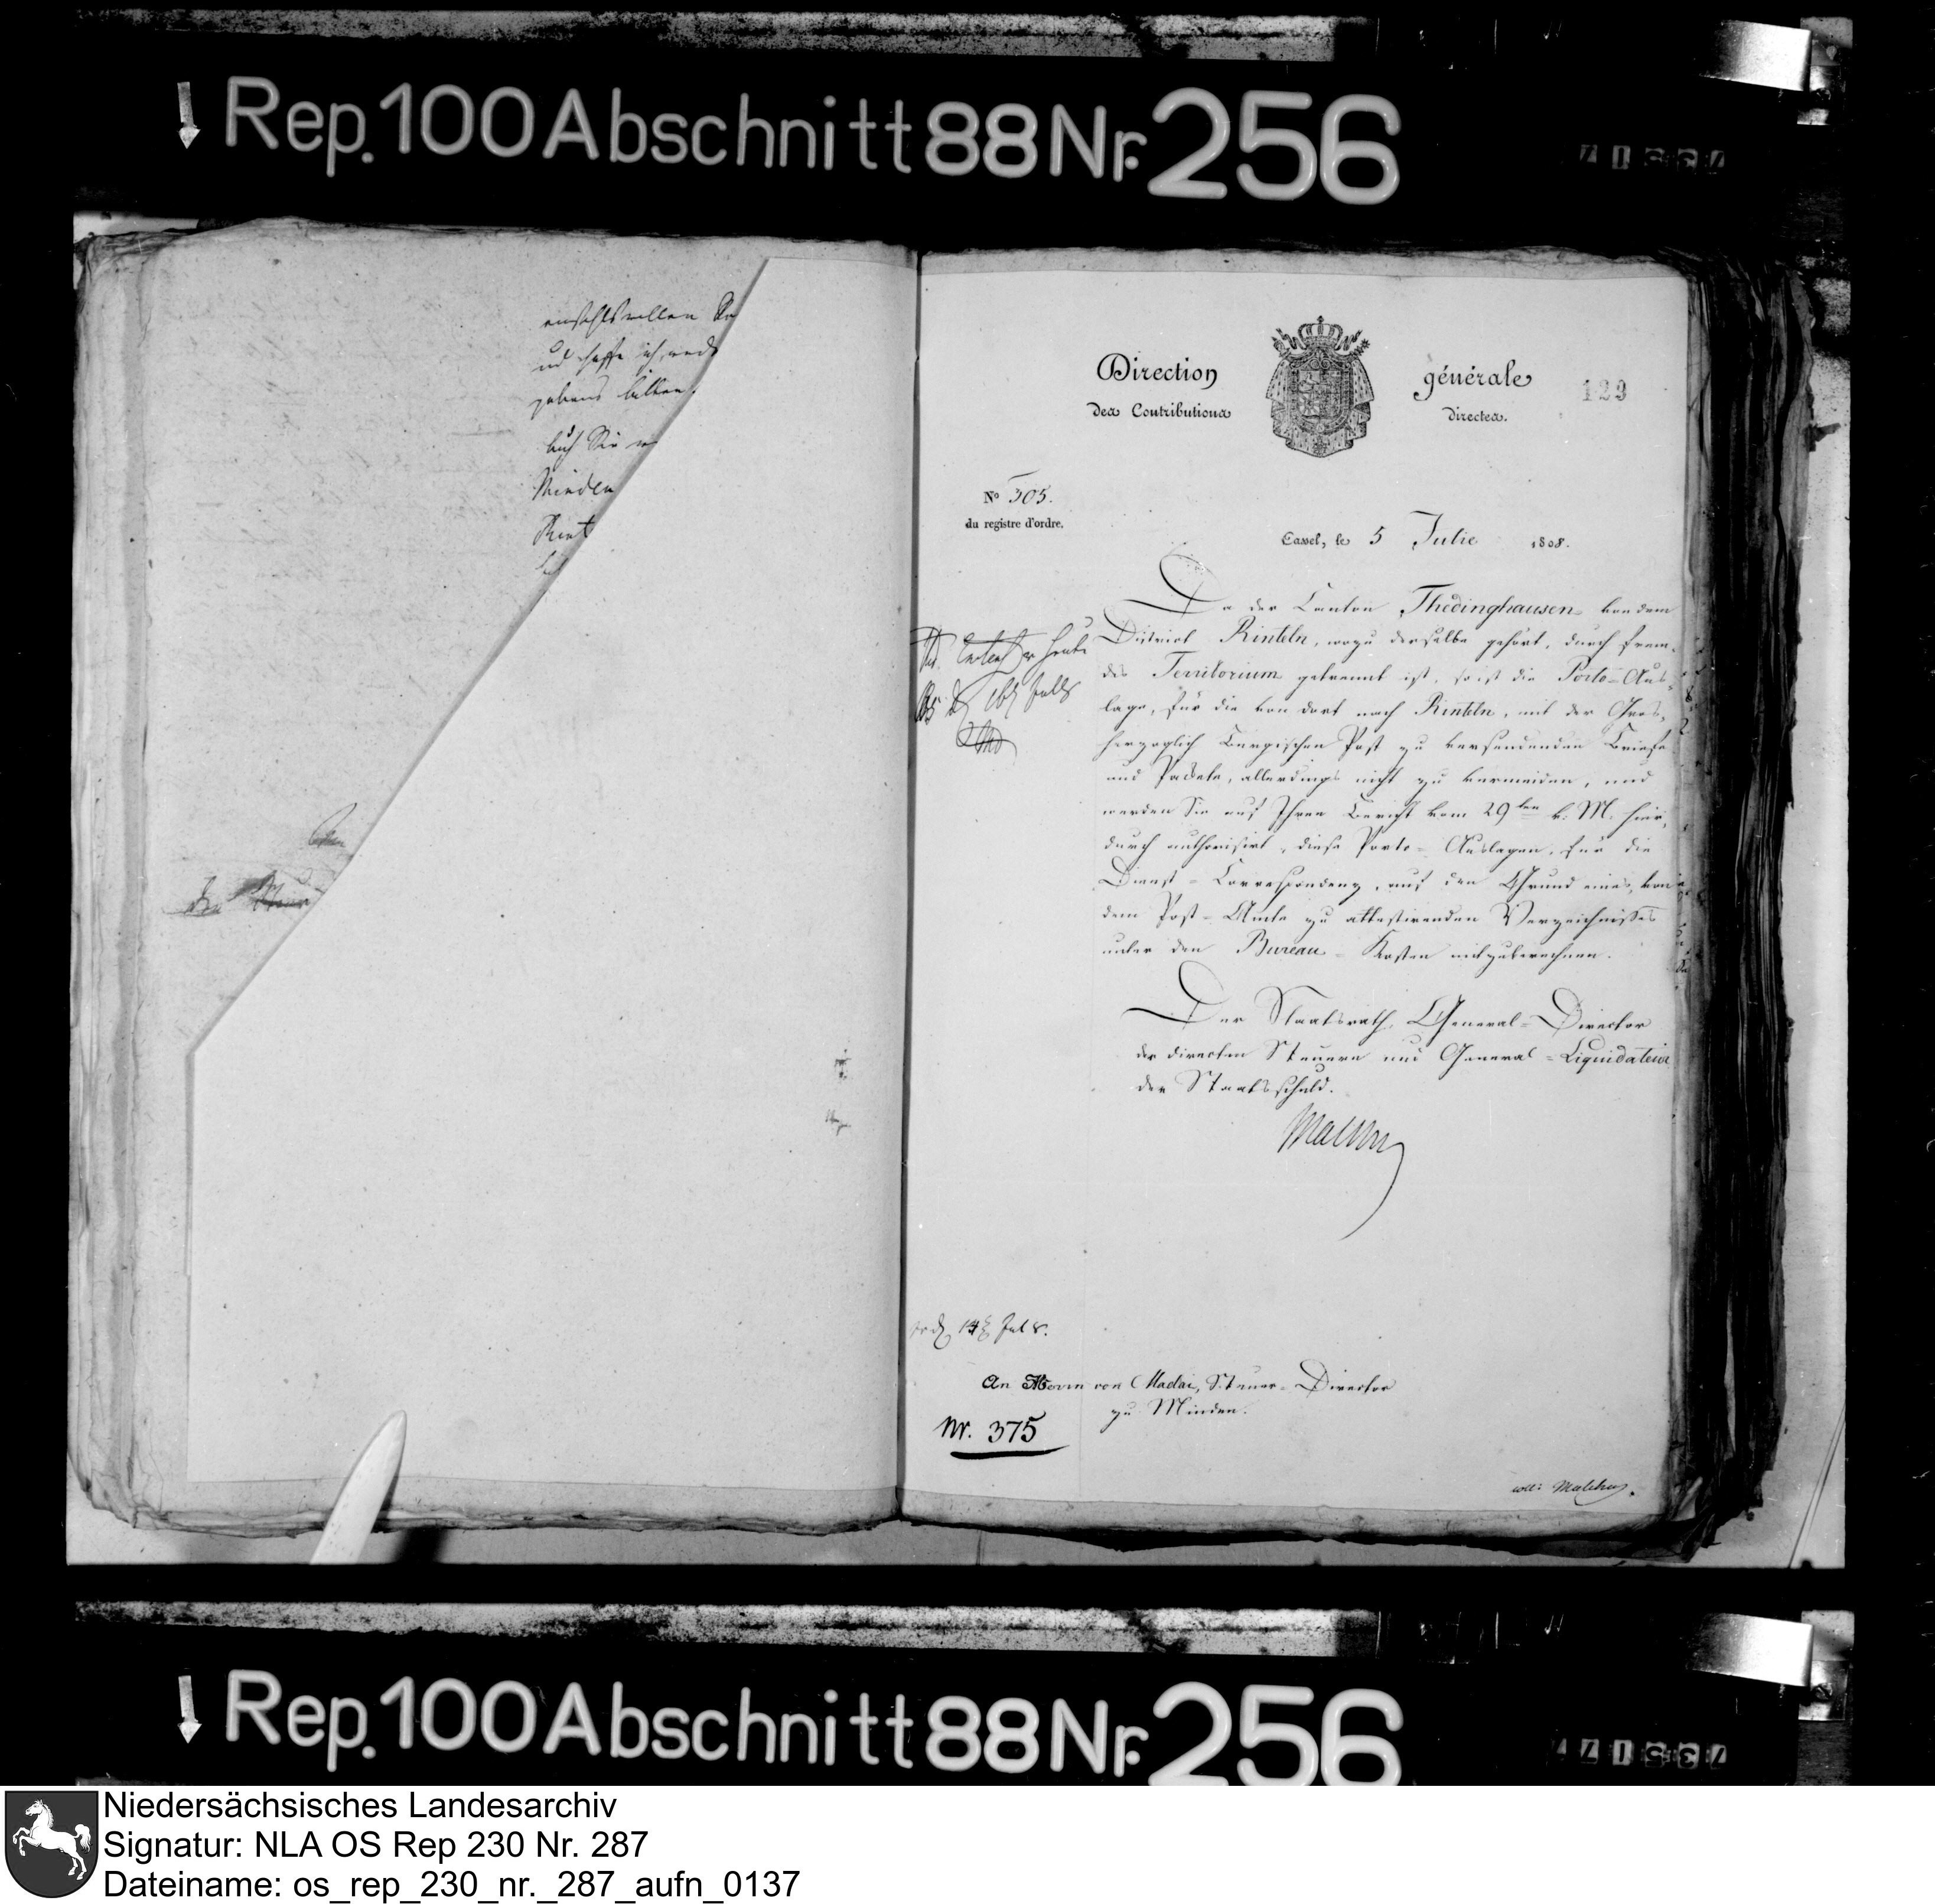 Rep. 100 Abschnitt 88 Nr. 256
Minden
Direction générale
des Contributions directes.
123
No 305.
du registre d'ordre.
Cassel, le 5 Julie 1808.
Da der Canton Thedinghausen von dem
District Rinteln, wozu derselbe gehört, durch frem-
des Territorium getrennt ist, so ist die Porto-Aus-
lage, für die von dort nach Rinteln, mit der Gros-
herzoglich Bergischen Post zu versendenden Briefe
und Packete, allerdings nicht zu vermeiden, und
werden Sie auf Ihren Bericht vom 29ten v. M. hier-
durch authorisirt, diese Porto-Auslagen, für die
Dienst-Correspondenz, auf den Grund eines, von
dem Post-Amte zu attestirenden Verzeichnisses
unter den Bureau-Kosten mitzuberechnen.
Der Staatsrath, General-Director
der directen Steuern und General-Liquidateur
der Staatsschuld.
Malchus
An Herrn von Madai, Steuer-Director
zu Minden.
Nr. 375
coll: Malchus.
Rep. 100 Abschnitt 88 Nr. 256
Niedersächsisches Landesarchiv
Signatur: NLA OS Rep 230 Nr. 287
Dateiname: os_rep_230_nr._287_aufn_0137